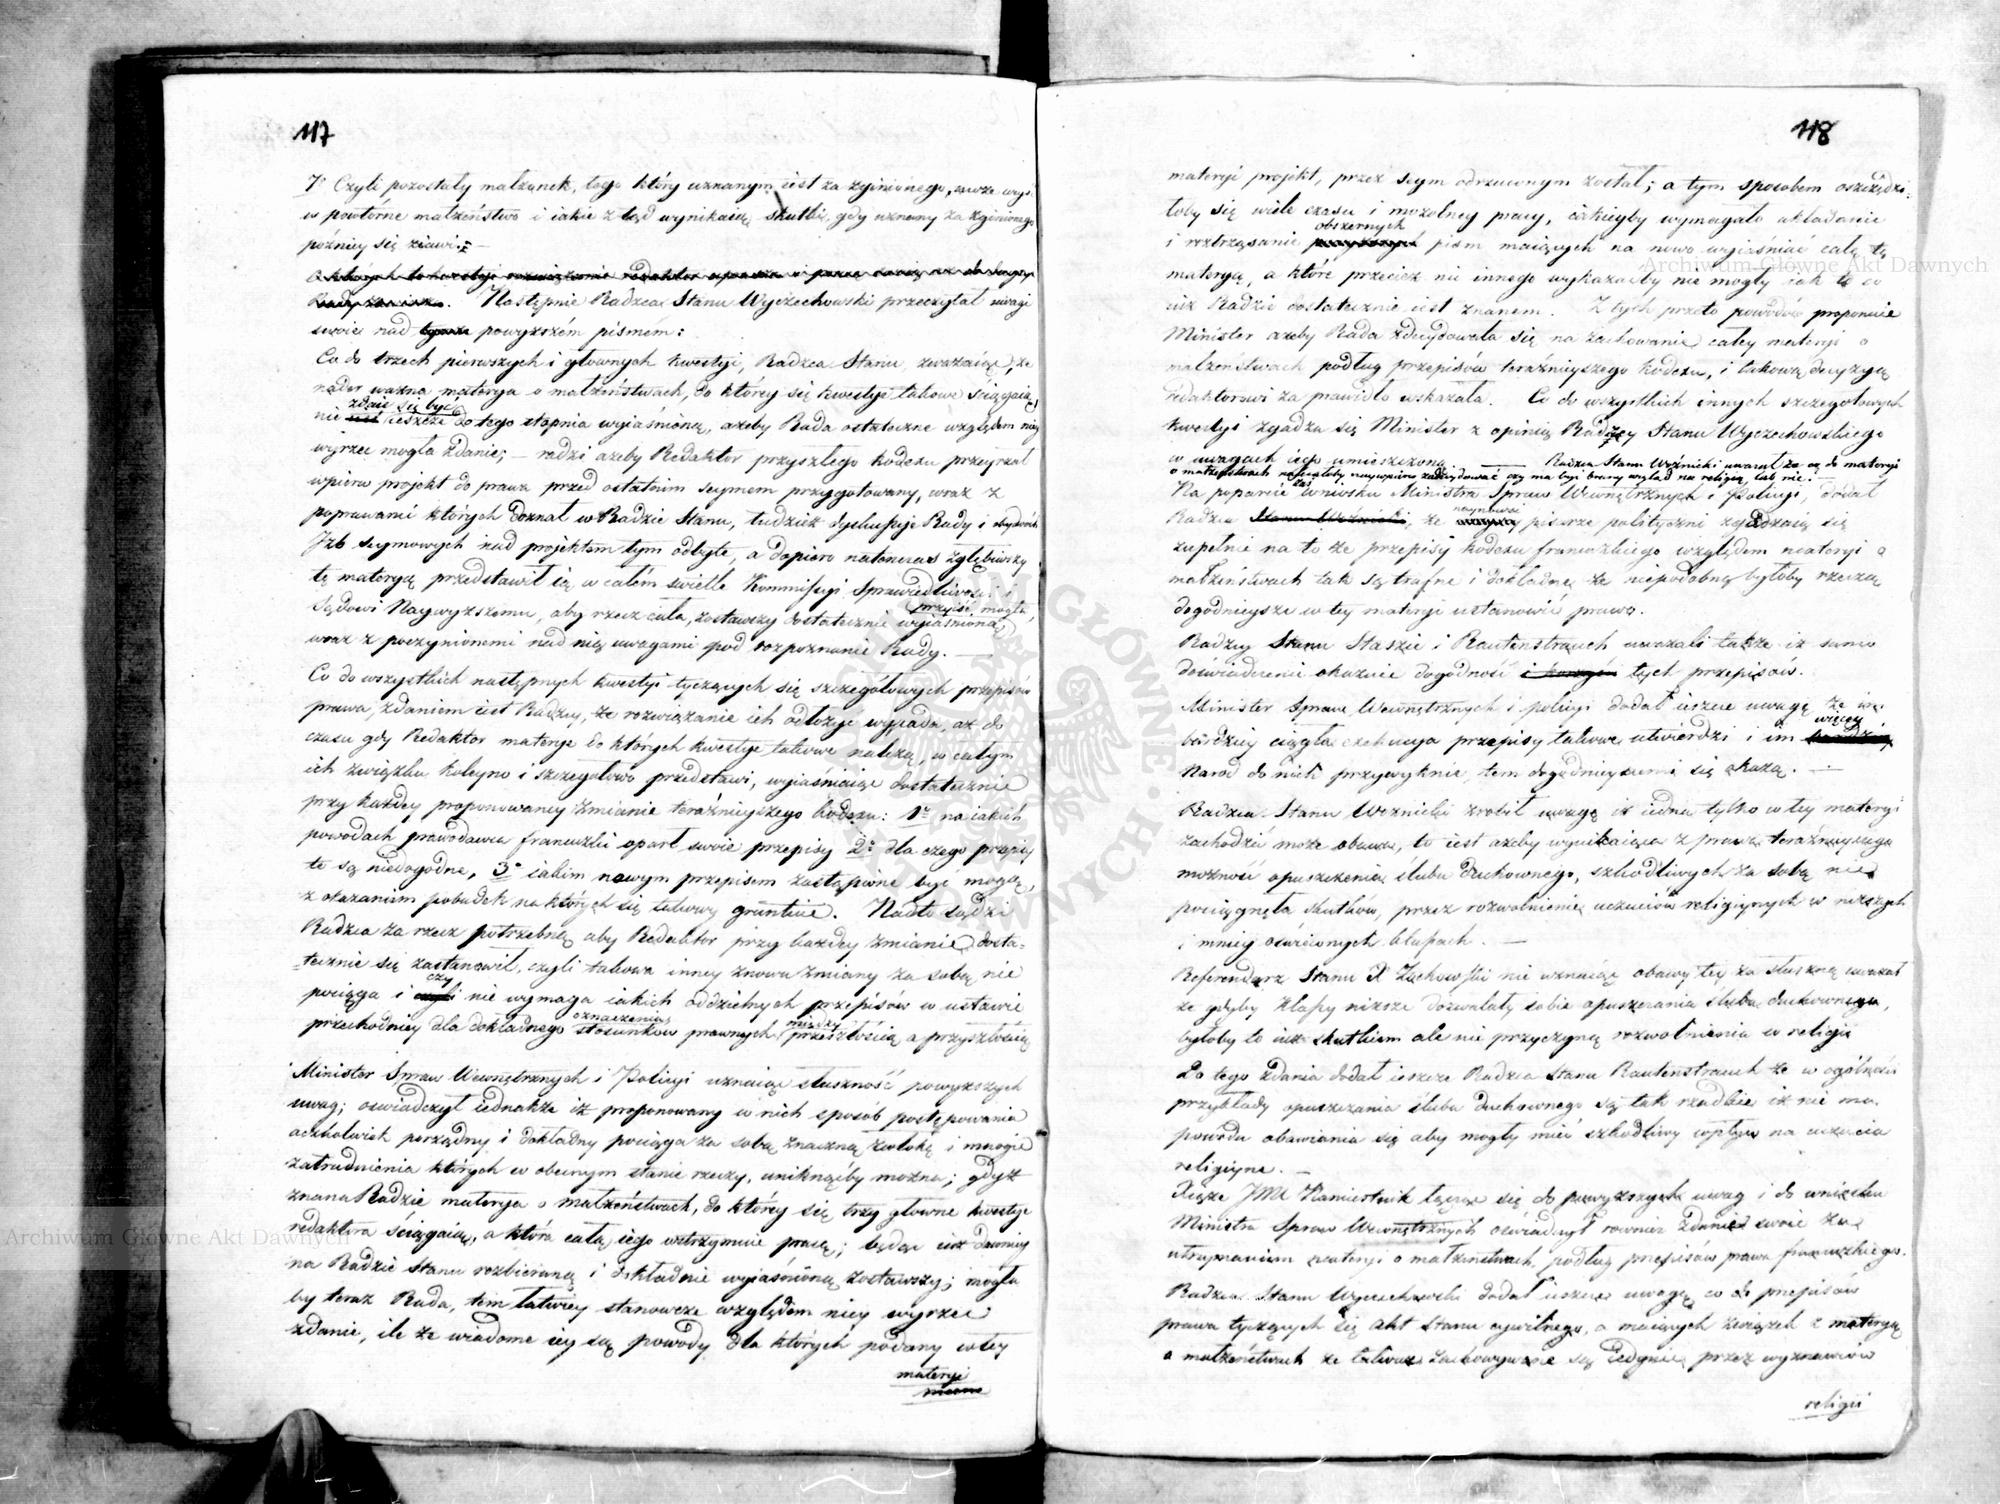 117
7° Czyli pozostały małżonek, tego który uznanym iest za zginionego, może wejść
w powtórne małżeństwo i iakie z tąd wynikaią skutki, gdy uznany za zginionego
późniey się ziawi. —
Następnie Radzca Stanu Wyczechowski przeczytał uwagi
swoie nad powyższém pismem:
Co do trzech pierwszych i głównych kwestyi, Radzca Stanu zważaiąc, że
nader ważna materya o małżeństwach, do którey się kwestye takowe ściągaią,
nie zdaie się być ieszcze do tego stopnia wyiaśnioną, ażeby Rada ostateczne względem niey
wyrzec mogła zdanie; — radzi ażeby Redaktor przyszłego kodexu przeyrzał
wpierw projekt do prawa przed ostatnim seymem przygotowany, wraz z
poprawami których doznał w Radzie Stanu, tudzież dyskussye Rady i obydwóch
Izb seymowych nad projektem tym odbyte, a dopiero natenczas zgłębiwszy
tę materyą przedstawił ią w całém świetle Kommissyi Sprawiedliwości i
Sądowi Naywyższemu, aby rzecz cała, zostawszy dostatecznie wyiaśnioną przyiść mogła,
wraz z poczynionemi nad nią uwagami pod rozpoznanie Rady. —
Co do wszystkich następnych kwestyi tyczących się szczegółowych przepisów
prawa, zdaniem iest Radzcy, że rozwiązanie ich odłożyć wypada, aż do
czasu gdy Redaktor materye do których kwestye takowe należą, w całym
ich związku koleyno i szczegółowo przedstawi, wyiaśniaiąc dostatecznie
przy każdey proponowaney zmianie teraźnieyszego kodexu: 1° na iakich
powodach prawodawca francuzki oparł swoie przepisy 2° dla czego przepisy
te są niedogodne, 3° iakim nowym przepisem zastąpione być mogą,
z okazaniem pobudek na których się takowy gruntuie. Nadto sądzi
Radzca za rzecz potrzebną aby Redaktor przy każdey zmianie dosta-
tecznie się zastanowił, czyli takowa inney znowu zmiany za sobą nie
pociąga i czy nie wymaga iakich oddzielnych przepisów w ustawie
przechodniey dla dokładnego oznaczenia stosunków prawnych między przeszłością a przyszłością
Minister Spraw Wewnętrznych i Policyi uznaiąc słuszność powyższych
uwag; oświadczył iednakże iż proponowany w nich sposób postępowania
aczkolwiek porządny i dokładny pociąga za sobą znaczną zwłokę i mnogie
zatrudnienia których w obecnym stanie rzeczy, uniknąćby można; gdyż
znana Radzie materya o małżeństwach, do którey się trzy główne kwestye
redaktora ściągaią, a która całą iego wstrzymuie pracę; będąc iuż dawniey
na Radzie Stanu rozbieraną i dokładnie wyiaśnioną zostawszy; mogła
by teraz Rada, tem łatwiey stanowcze względem niey wyrzec
zdanie, ile że wiadome iey są powody dla których podany w tey
materyi
118
materyi projekt, przez seym odrzuconym został; a tym sposobem oszczędzi-
łoby się wiele czasu i mozolney pracy, iakieyby wymagało układanie
i roztrząsanie obszernych pism maiących na nowo wyiaśniać całą tę
materyą, a które przecież nic innego wykazaćby nie mogły iak to co
iuż Radzie dostatecznie iest znanem. Z tych przeto powodów proponuie
Minister ażeby Rada zdecydowała się na zachowanie całey materyi o
małżeństwach podług przepisów teraźnieyszego kodexu, i takową decyzyą
redaktorowi za prawidło wskazała. Co do wszystkich innych szczegółowych
kwestyi zgadza się Minister z opinią Radzcy Stanu Wyczechowskiego
w uwagach iego umieszczoną — Radzca Stanu Woźnicki uważał że co do materyi
o małżeństwach należałoby naypierw zadecydować czy ma być brany wzgląd na religią, lub nie. —
Na poparcie zaś wniosku Ministra Spraw Wewnętrznych i Policyi, dodał
Radzca że naynowsi pisarze polityczni zgadzaią się
zupełnie na to że przepisy kodexu francuzkiego względem materyi o
małżeństwach tak są trafne i dokładne że niepodobną byłoby rzeczą
dogodnieysze w tey materyi ustanowić prawo.
Radzcy Stanu Staszic i Rautenstrauch uważali także iż samo
doświadczenie okazuie dogodność tych przepisów.
Minister Spraw Wewnętrznych i policyi dodał ieszcze uwagę że im
bardziey ciągła exekucya przepisy takowe utwierdzi i im więcey
Naród do nich przywyknie, tem dogodnieyszemi się okażą. —
Radzca Stanu Woźnicki zrobił uwagę iż iedna tylko w tey materyi
zachodzić może obawa, to iest ażeby wynikaiąca z prawa teraźnieyszego
możność opuszczenia ślubu duchownego, szkodliwych za sobą nie
pociągnęła skutków, przez rozwolnienie uczuciów religiynych w niższych
i mniey oświeconych klassach. —
Referendarz Stanu X. Żochowski nie uznaiąc obawy tey za słuszną uważał
że gdyby klassy niższe dozwalały sobie opuszczania ślubu duchownego,
byłoby to iuż skutkiem ale nie przyczyną rozwolnienia w religii
Do tego zdania dodał ieszcze Radzca Stanu Rautenstrauch że w ogólności
przykłady opuszczania ślubu duchownego są tak rzadkie iż nie ma
powodu obawiania się aby mogły mieć szkodliwy wpływ na uczucia
religiyne. —
Xiąże JMć Namiestnik łącząc się do powyższych uwag i do wniosku
Ministra Spraw Wewnętrznych oświadczył równie zdanie swoie za
utrzymaniem materyi o małżeństwach, podług przepisów prawa francuzkiego.
Radzca Stanu Wyczechowski dodał ieszcze uwagę co do przepisów
prawa tyczących się akt Stanu cywilnego, a maiących związek z materyą
o małżeństwach że takowe zachowywane są iedynie przez wyznawców
religii
Archiwum Główne Akt Dawnych
Archiwum Główne Akt Dawnych